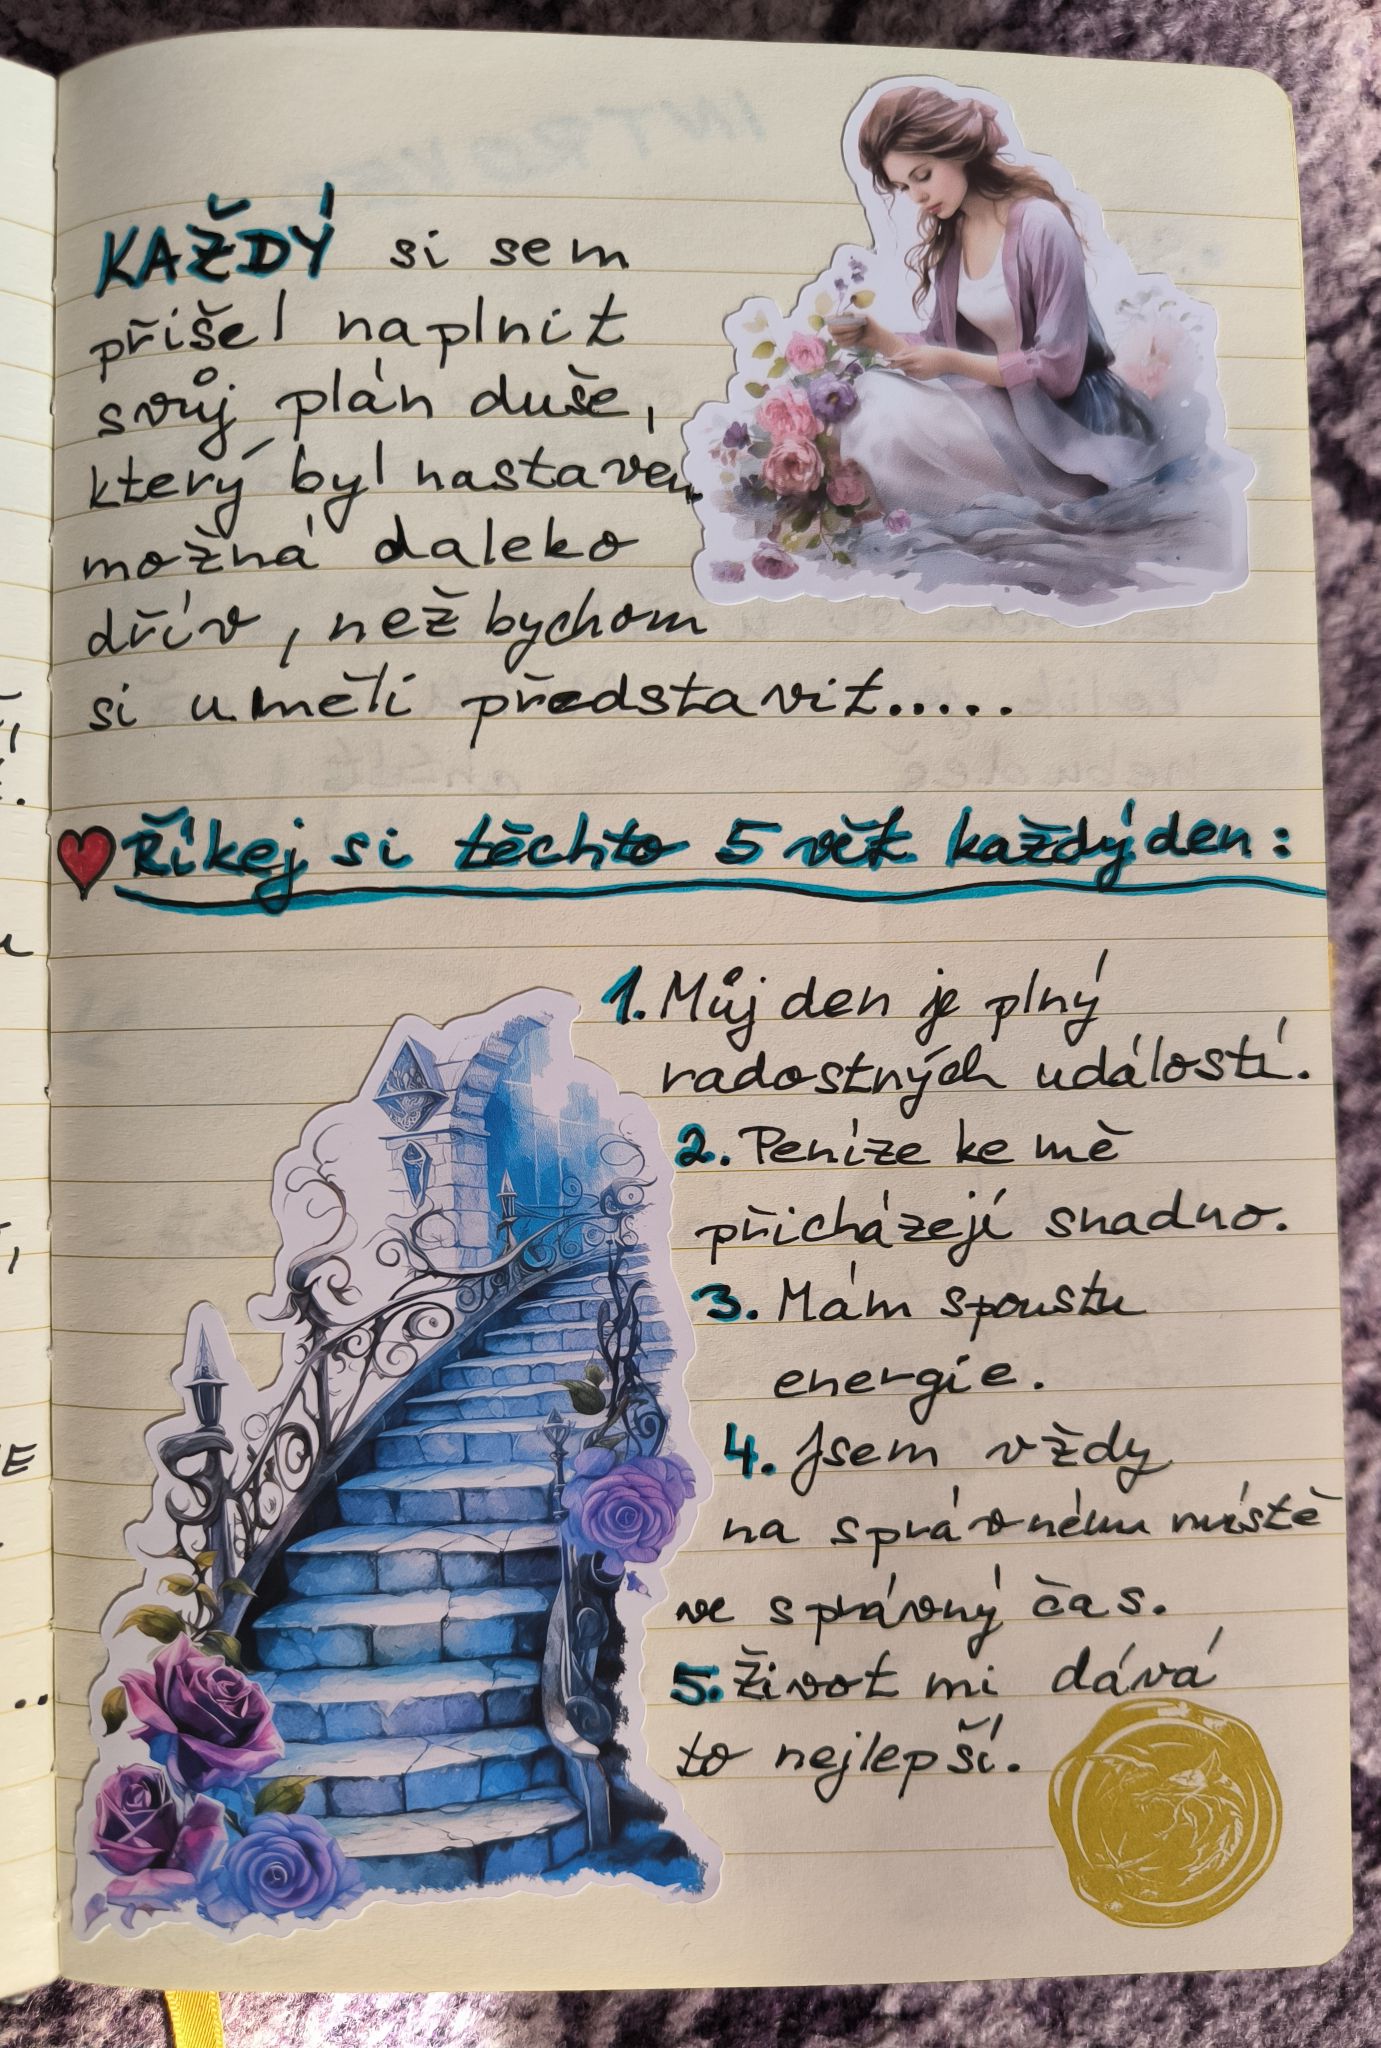 KAŽDÝ si sem
přišel naplnit
svůj plán duše,
který byl nastaven
možná daleko
dřív, než bychom
si uměli představit.....
Říkej si těchto 5 vět každý den:
1. Můj den je plný
radostných událostí.
2. Peníze ke mě
přicházejí snadno.
3. Mám spoustu
energie.
4. Jsem vždy
na správném místě
ve správný čas.
5. Život mi dává
to nejlepší.